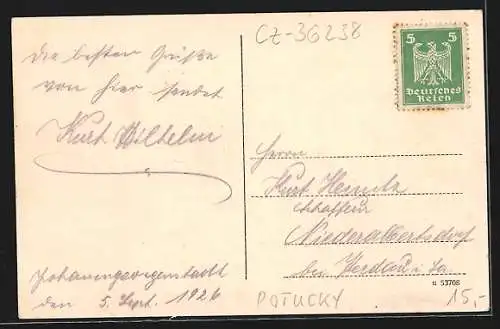 Die besten Grüße
von hier sendet
Kurt Wilhelm
Johanngeorgenstadt
den 5. Sept. 1926
CZ-36238
5 5
Deutsches
Reich
Herrn
Kurt
Niederalbertsdorf
bei Werdau i. Sa.
u 53708
POTUCKY 15,-